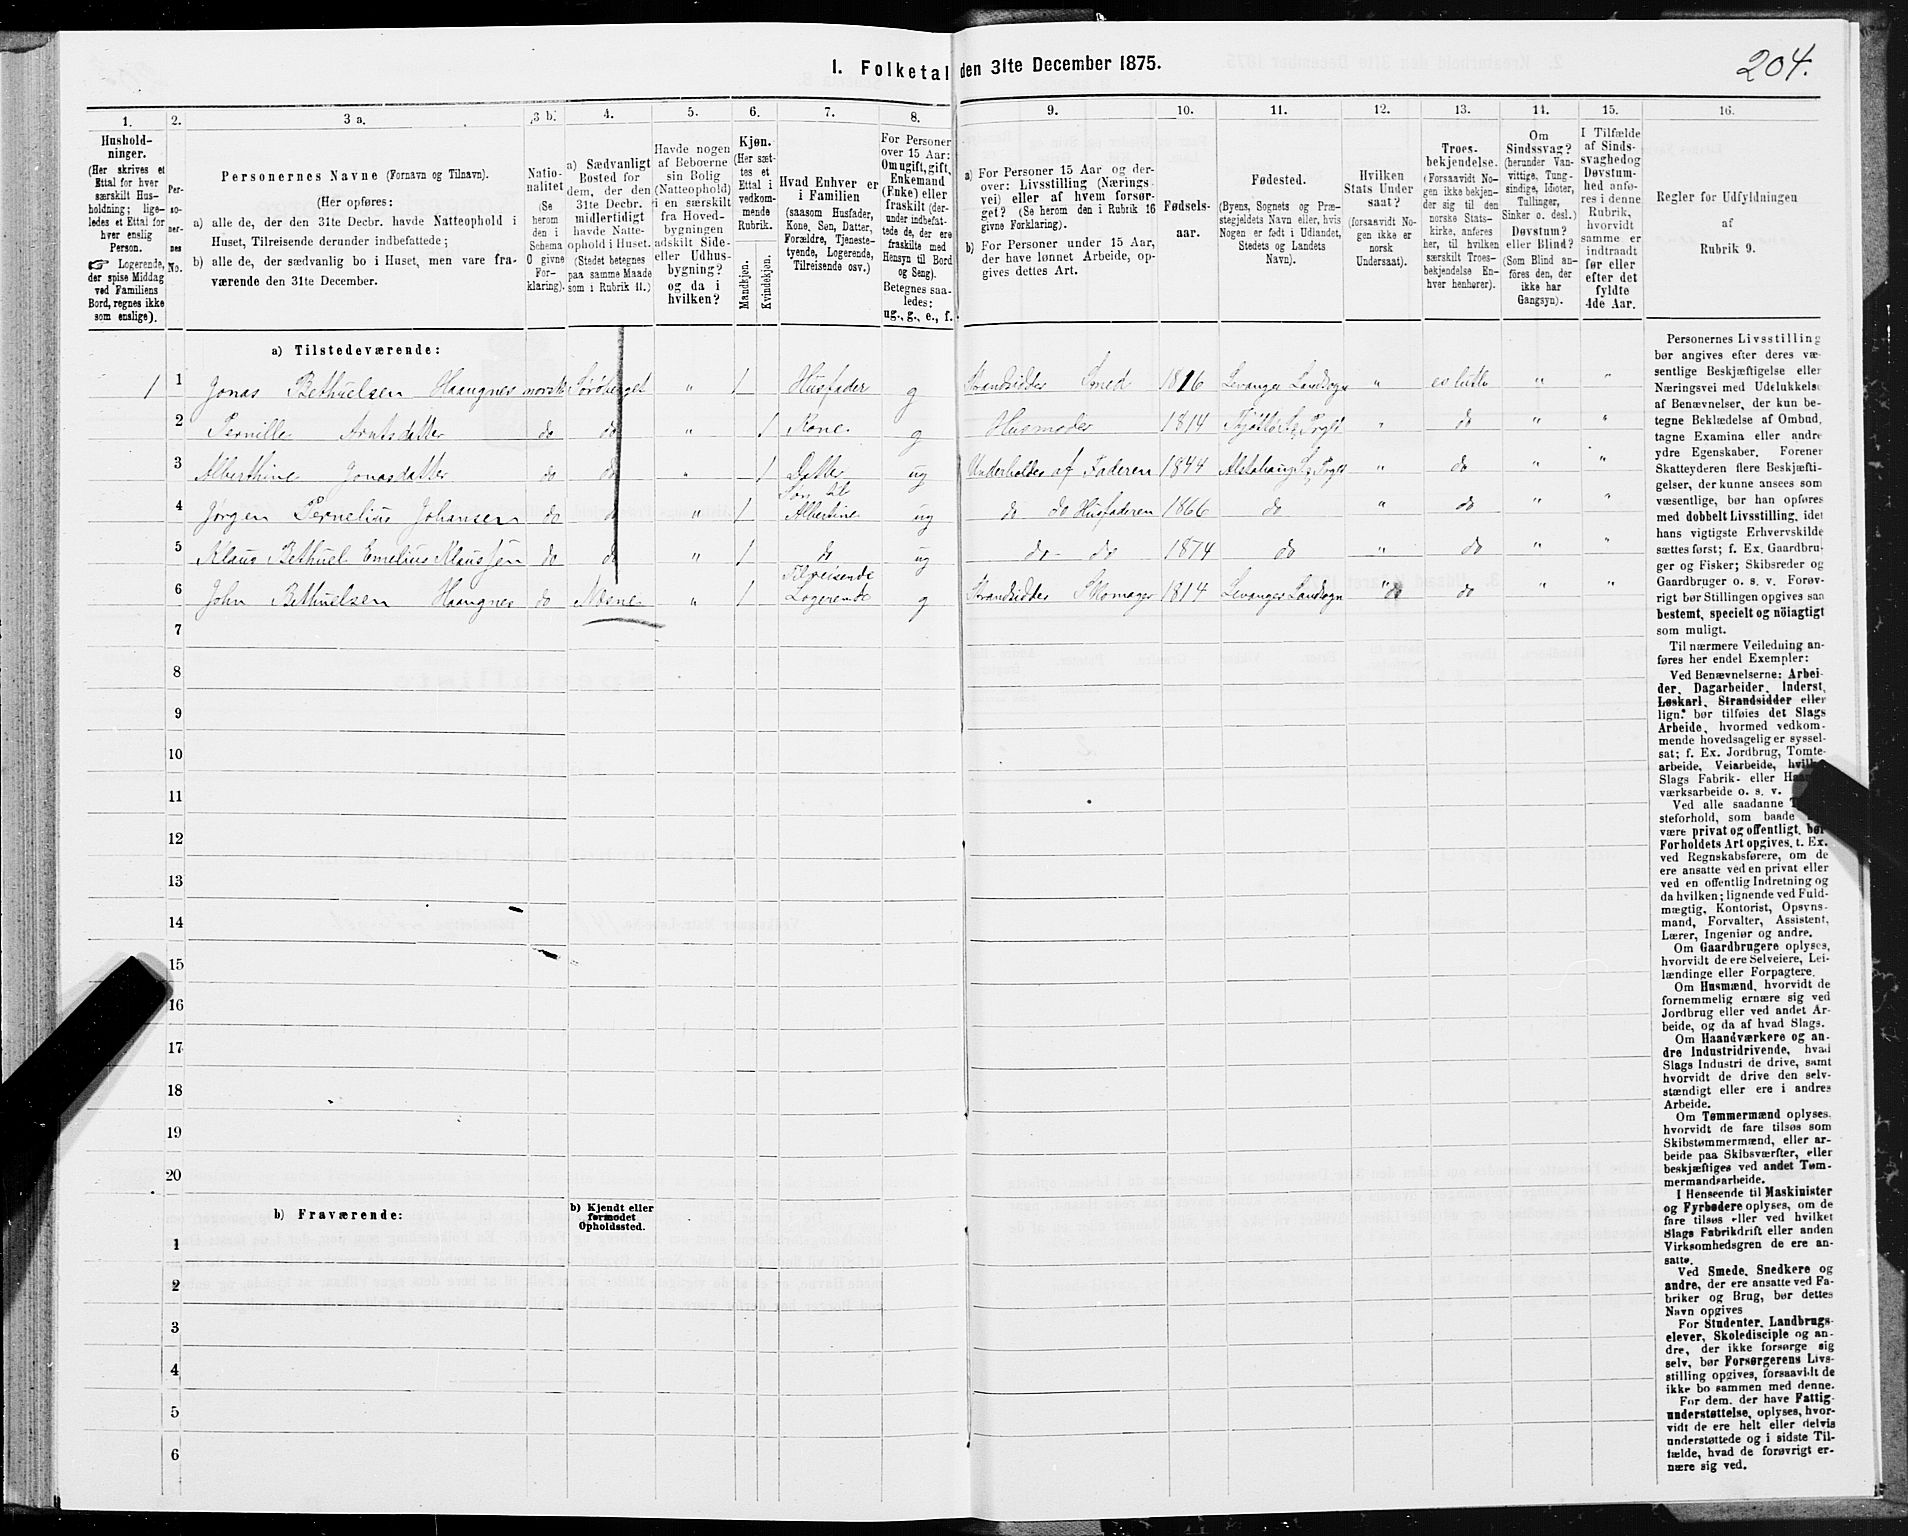 204.
1. Folketal den 31te December 1875.
1. 2. 3 a. 3 b. 4. 5. 6. 7. 8. 9. 10. 11. 12. 13. 14. 15. 16.
Hushold-
ninger.
(Her skrives et
Ettal for hver
særskilt Hus-
holdning; lige-
ledes et Ettal for
hver enslig
Person.
☞ Logerende,
der spise Middag
ved Familiens
Bord, regnes ikke
som enslige).
Per-
so-
ner-
nes
No.
Personernes Navne (Fornavn og Tilnavn).
(Her opføres:
a) alle de, der den 31te Decbr. havde Natteophold i
Huset, Tilreisende derunder indbefattede;
b) alle de, der sædvanlig bo i Huset, men vare fra-
værende den 31te December.
Natio-
nalitet
(Se
herom
den i
Schema
O givne
For-
klaring).
a) Sædvanligt
Bosted for
dem, der den
31te Decbr.
midlertidigt
havde Natte-
ophold i Huset.
(Stedet betegnes
paa samme Maade
som i Rubrik 11.)
Havde nogen
af Beboerne
sin Bolig
(Natteophold)
i en særskilt
fra Hoved-
bygningen
adskilt Side-
eller Udhus-
bygning?
og da i
hvilken?
Kjøn.
(Her sæt-
tes et
Ettal i
vedkom-
mende
Rubrik.
Mandkjøn.
Kvindekjøn.
Hvad Enhver er
i Familien
(saasom Husfader,
Kone, Søn, Datter,
Forældre, Tjeneste-
tyende, Logerende,
Tilreisende osv.)
For Personer
over 15 Aar:
Om ugift, gift,
Enkemand
(Enke) eller
fraskilt (der-
under indbefat-
tede de, der ere
fraskilte med
Hensyn til Bord
og Seng).
Betegnes saa-
ledes:
ug., g., e., f.
a) For Personer 15 Aar og der-
over: Livsstilling (Nærings-
vei) eller af hvem forsør-
get? (Se herom den i Rubrik 16
givne Forklaring).
b) For Personer under 15 Aar,
der have lønnet Arbeide, op-
gives dettes Art.
Fødsels-
aar.
Fødested.
(Byens, Sognets og Præ-
stegjeldets Navn eller, hvis
Nogen er født i Udlandet,
Stedets og Landets
Navn).
Hvilken
Stats Under
saat?
(forsaavidt No-
gen ikke er
norsk
Undersaat).
Troes-
bekjendelse.
(Forsaavidt No-
gen ikke bekjen-
der sig til den
norske Stats-
kirke, anføres
her, til hvilken
særskilt Troes-
bekjendelse En-
hver henhører).
Om
Sindssvag?
(herunder Van-
vittige, Tung-
sindige, Idioter,
Tullinger,
Sinker o. desl.)
Døvstum?
eller Blind?
(Som Blind an-
føres den, der
ikke har
Gangsyn).
I Tilfælde
af Sinds-
svaghed og
Døvstum-
hed anfø-
res i denne
Rubrik,
hvorvidt
samme er
indtraadt
før eller
efter det
fyldte
4de Aar.
Regler for Udfyldningen
af
Rubrik 9.
a) Tilstedeværende:
1 1 Jonas Bethuelsen Haangnes norsk " 1 Husfader g Strandsidder Smed 1816 Levanger Landsogn " ev luth " "
2 Pernille Arntsdatter do do " 1 Kone g Husmoder 1814 " do " "
3 Alberthine Jonasdatter do do " 1 Datter ug Underholdes af Faderen 1844 " do " "
4 Jørgen Pernelius Johansen do do " 1 Søn til Albertine ug do do Husfaderen 1866 do " do " "
5 Klaus Bethuel Emelius Klaussen do do " 1 do ug do do 1874 do " do " "
6 John Bethuelsen Haangnes do Næsne " 1 Tilreisende Logerende g Strandsidder Skomager 1814 Levanger Landsogn " do do " "
7
8
9
10
11
12
13
14
15
16
17
18
19
20
b) Fraværende: b) Kjendt eller
formodet
Opholdssted.
1
2
3
4
5
6
Personernes Livsstilling
bør angives efter deres væ-
sentlige Beskjæftigelse eller
Næringsvei med Udelukkelse
af Benævnelser, der kun be-
tegne Beklædelse af Ombud,
tagne Examina eller andre
ydre Egenskaber. Forener
Skatteyderen flere Beskjæfti-
gelser, der kunne ansees som
væsentlige, bør han opføres
med dobbelt Livsstilling, idet
hans vigtigste Erhvervskilde
sættes først; f. Ex. Gaardbru-
ger og Fisker; Skibsreder og
Gaardbruger o. s. v. Forøv-
rigt bør Stillingen opgives saa
bestemt, specielt og nöiagtigt
som muligt.
Til nærmere Veiledning an-
føres her endel Exempler:
Ved Benævnelserne: Arbei-
der, Dagarbeider, Inderst,
Løskarl, Strandsidder eller
lign. bør tilføies det Slags
Arbeide, hvormed vedkom-
mende hovedsagelig er syssel-
sat; f. Ex. Jordbrug, Tomte-
arbeide, Veiarbeide, hvilket
Slags Fabrik- eller
værksarbeide o. s. v.
Ved alle saadanne
steforhold, som baade
være privat og offentligt, bør
Forholdets Art opgives, t. Ex.
ved Regnskabsførere, om de
ere ansatte ved en privat eller
ved en offentlig Indretning og
da hvilken; lignende ved Fuld-
mægtig, Kontorist, Opsyns-
mand, Forvalter, Assistent,
Lærer, Ingeniør og andre.
Om Gaardbrugere oplyses,
hvorvidt de ere Selveiere, Lei-
lændinge eller Forpagtere.
Om Husmænd, hvorvidt de
fornemmelig ernære sig ved
Jordbrug eller ved andet Ar-
beide, og da af hvad Slags.
Om Haandværkere og an-
dre Industridrivende, hvad
Slags Industri de drive, samt
hvorvidt de drive den selv-
stændigt eller ere i andres
Arbeide.
Om Tømmermænd oplyses,
hvorvidt de fare tilsøs som
Skibstømmermænd, eller ar-
beide paa Skibsværfter, eller
beskjæftiges ved andet Tøm-
mermandsarbeide.
I Henseende til Maskinister
og Fyrbødere oplyses, om de
fare tilsøs eller ved hvilket
Slags Fabrikdrift eller anden
Virksomhedsgren de ere an-
satte.
Ved Smede, Snedkere og
andre, der ere ansatte ved Fa-
briker og Brug, bør dettes
Navn opgives
For Studenter, Landbrugs-
elever, Skoledisciple og an-
dre, der ikke forsørge sig
selv, bør Forsørgerens Livs-
stilling opgives, forsaavidt de
ikke bo sammen med denne.
For dem, der have Fattig-
understøttelse, oplyses, hvor-
vidt de ere helt eller delvis
understøttede og i sidste Til-
fælde, hvad de forøvrigt er-
nære sig ved.